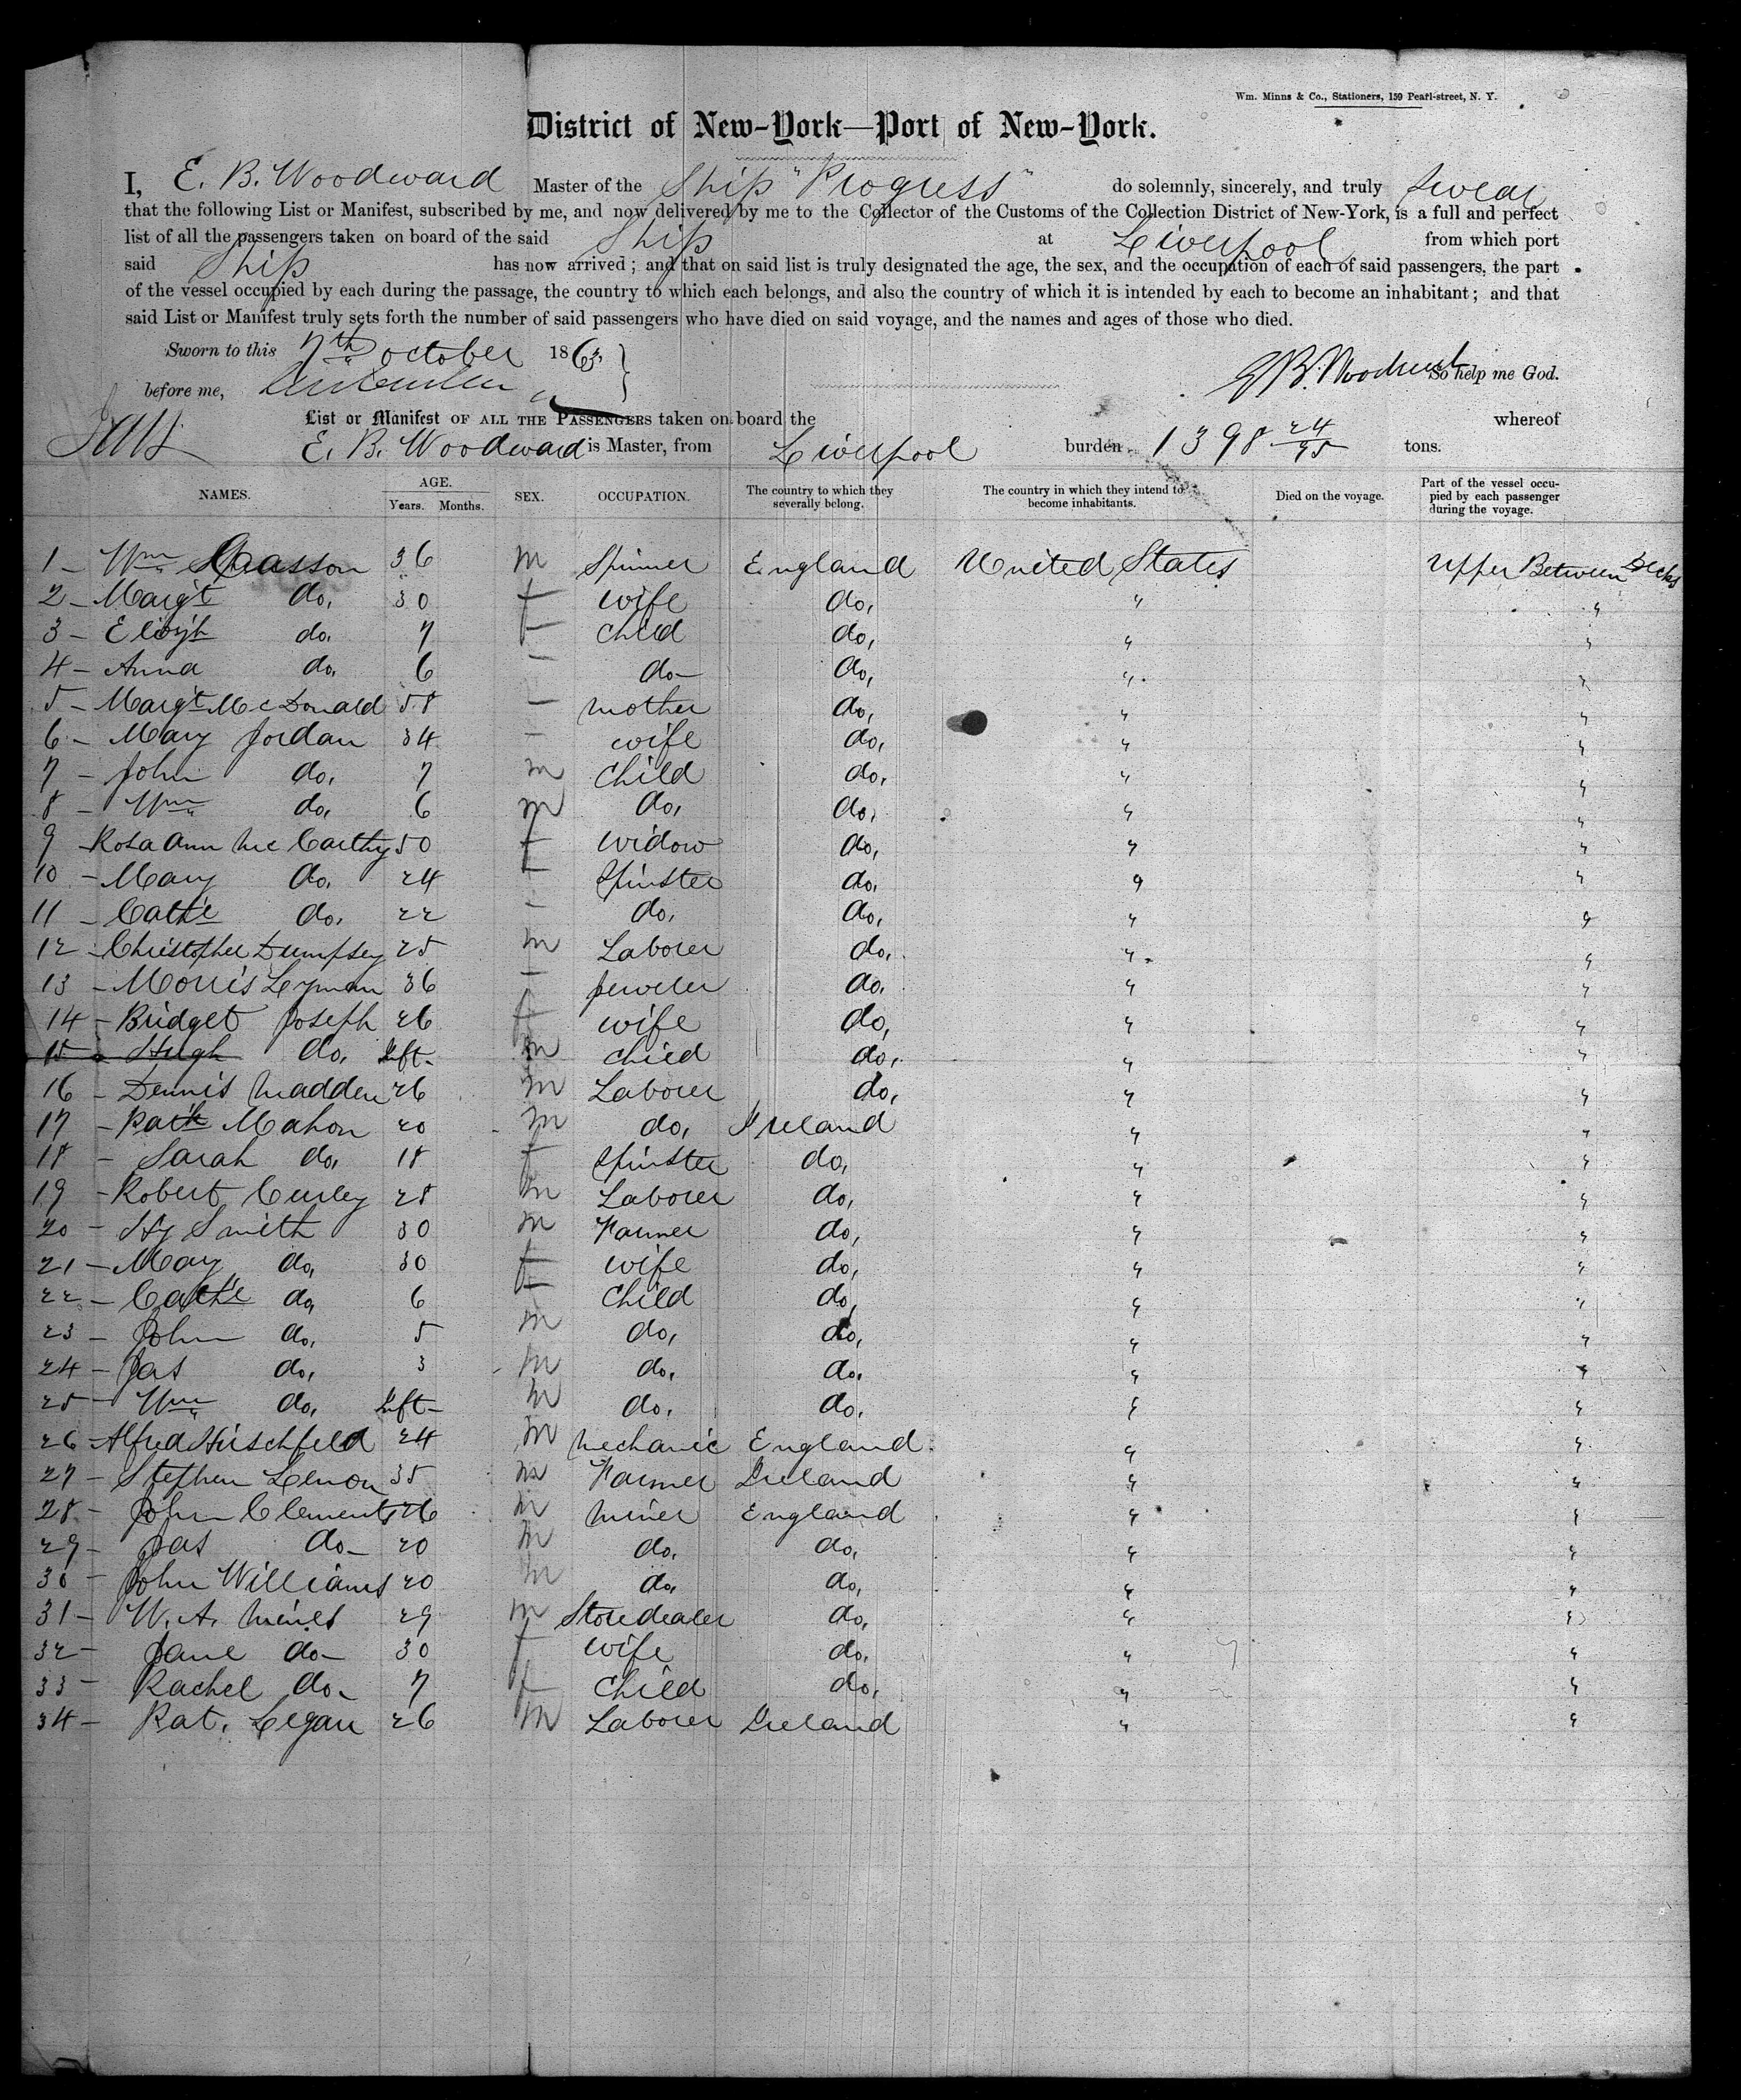 Wm. Minns & Co., Stationers, 159 Pearl-street, N. Y.
District of New-York—Port of New-York.
I, E. B. Woodward Master of the Ship "Progress" do solemnly, sincerely, and truly swear
that the following List or Manifest, subscribed by me, and now delivered by me to the Collector of the Customs of the Collection District of New-York, is a full and perfect
list of all the passengers taken on board of the said Ship at Liverpool from which port
said Ship has now arrived; and that on said list is truly designated the age, the sex, and the occupation of each of said passengers, the part
of the vessel occupied by each during the passage, the country to which each belongs, and also the country of which it is intended by each to become an inhabitant; and that
said List or Manifest truly sets forth the number of said passengers who have died on said voyage, and the names and ages of those who died.
Sworn to this 7th October 1863
before me, E B. Woodward So help me God.
List or Manifest OF ALL THE PASSENGERS taken on board the whereof
E. B. Woodward is Master, from Liverpool burden 1398 24/95 tons.
NAMES. AGE. Years. Months. SEX. OCCUPATION. The country to which they severally belong. The country in which they intend to become inhabitants. Died on the voyage. Part of the vessel occupied by each passenger during the voyage.
1 - Wm 36 m Spinner England United States Upper Between Decks
2 - Margt do, 30 f wife do, "
3 - Elizth do, 7 f child do, " "
4 - Anna do, 6 - do - do, " "
5 - Margt McDonald 58 - mother do, " "
6 - Mary Jordan 34 - wife do, " "
7 - John do, 7 m child do, " "
8 - Wm do, 6 m do, do, " "
9 - Rosa Ann McCarthy 50 f widow do, " "
10 - Mary do, 24 f Spinster do, " "
11 - Cathe do, 22 - do, do, " "
12 - Christopher Dumpsey 25 m Laborer do, " "
13 - Morris Lyman 36 - Jeweler do, " "
14 - Bridget Joseph 26 f wife do, " "
15 - Hugh do, Inft - m child do, " "
16 - Dennis Madden 26 m Laborer do, " "
17 - Patk Mahon 20 m do, Ireland " "
18 - Sarah do, 18 f Spinster do, " "
19 - Robert Curley 28 m Laborer do, " "
20 - Hy Smith 30 m Farmer do, " "
21 - Mary do, 30 f wife do, " "
22 - Cathe do, 6 f child do, " "
23 - John do, 5 m do, do, " "
24 - Jas do, 3 m do, do, " "
25 - Wm do, Inft - m do, do, " "
26 - Alfred Hirschfeld 24 m mechanic England " "
27 - Stephen Lenon 35 m Farmer Ireland " "
28 - John Clements 26 m miner England " "
29 - Jas do - 20 m do, do, " "
30 - John Williams 20 m do, do, " "
31 - W. A. 29 m Storedealer do, " "
32 - Jane do - 30 f wife do, " "
33 - Rachel do - 7 f child do, " "
34 - Pat. Legan 26 m Laborer Ireland " "